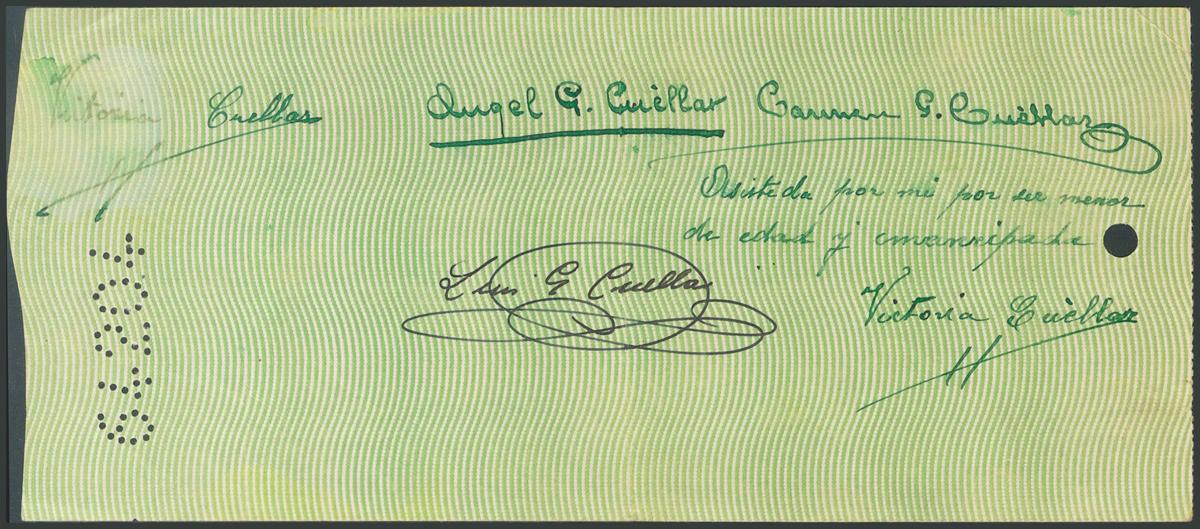 Victoria Cuellar
Angel G. Cuéllar
Carmen G. Cuéllar
Asisteda por mi por ser menor
de edad y emancipada
Luis G Cuellar
Victoria Cuéllar